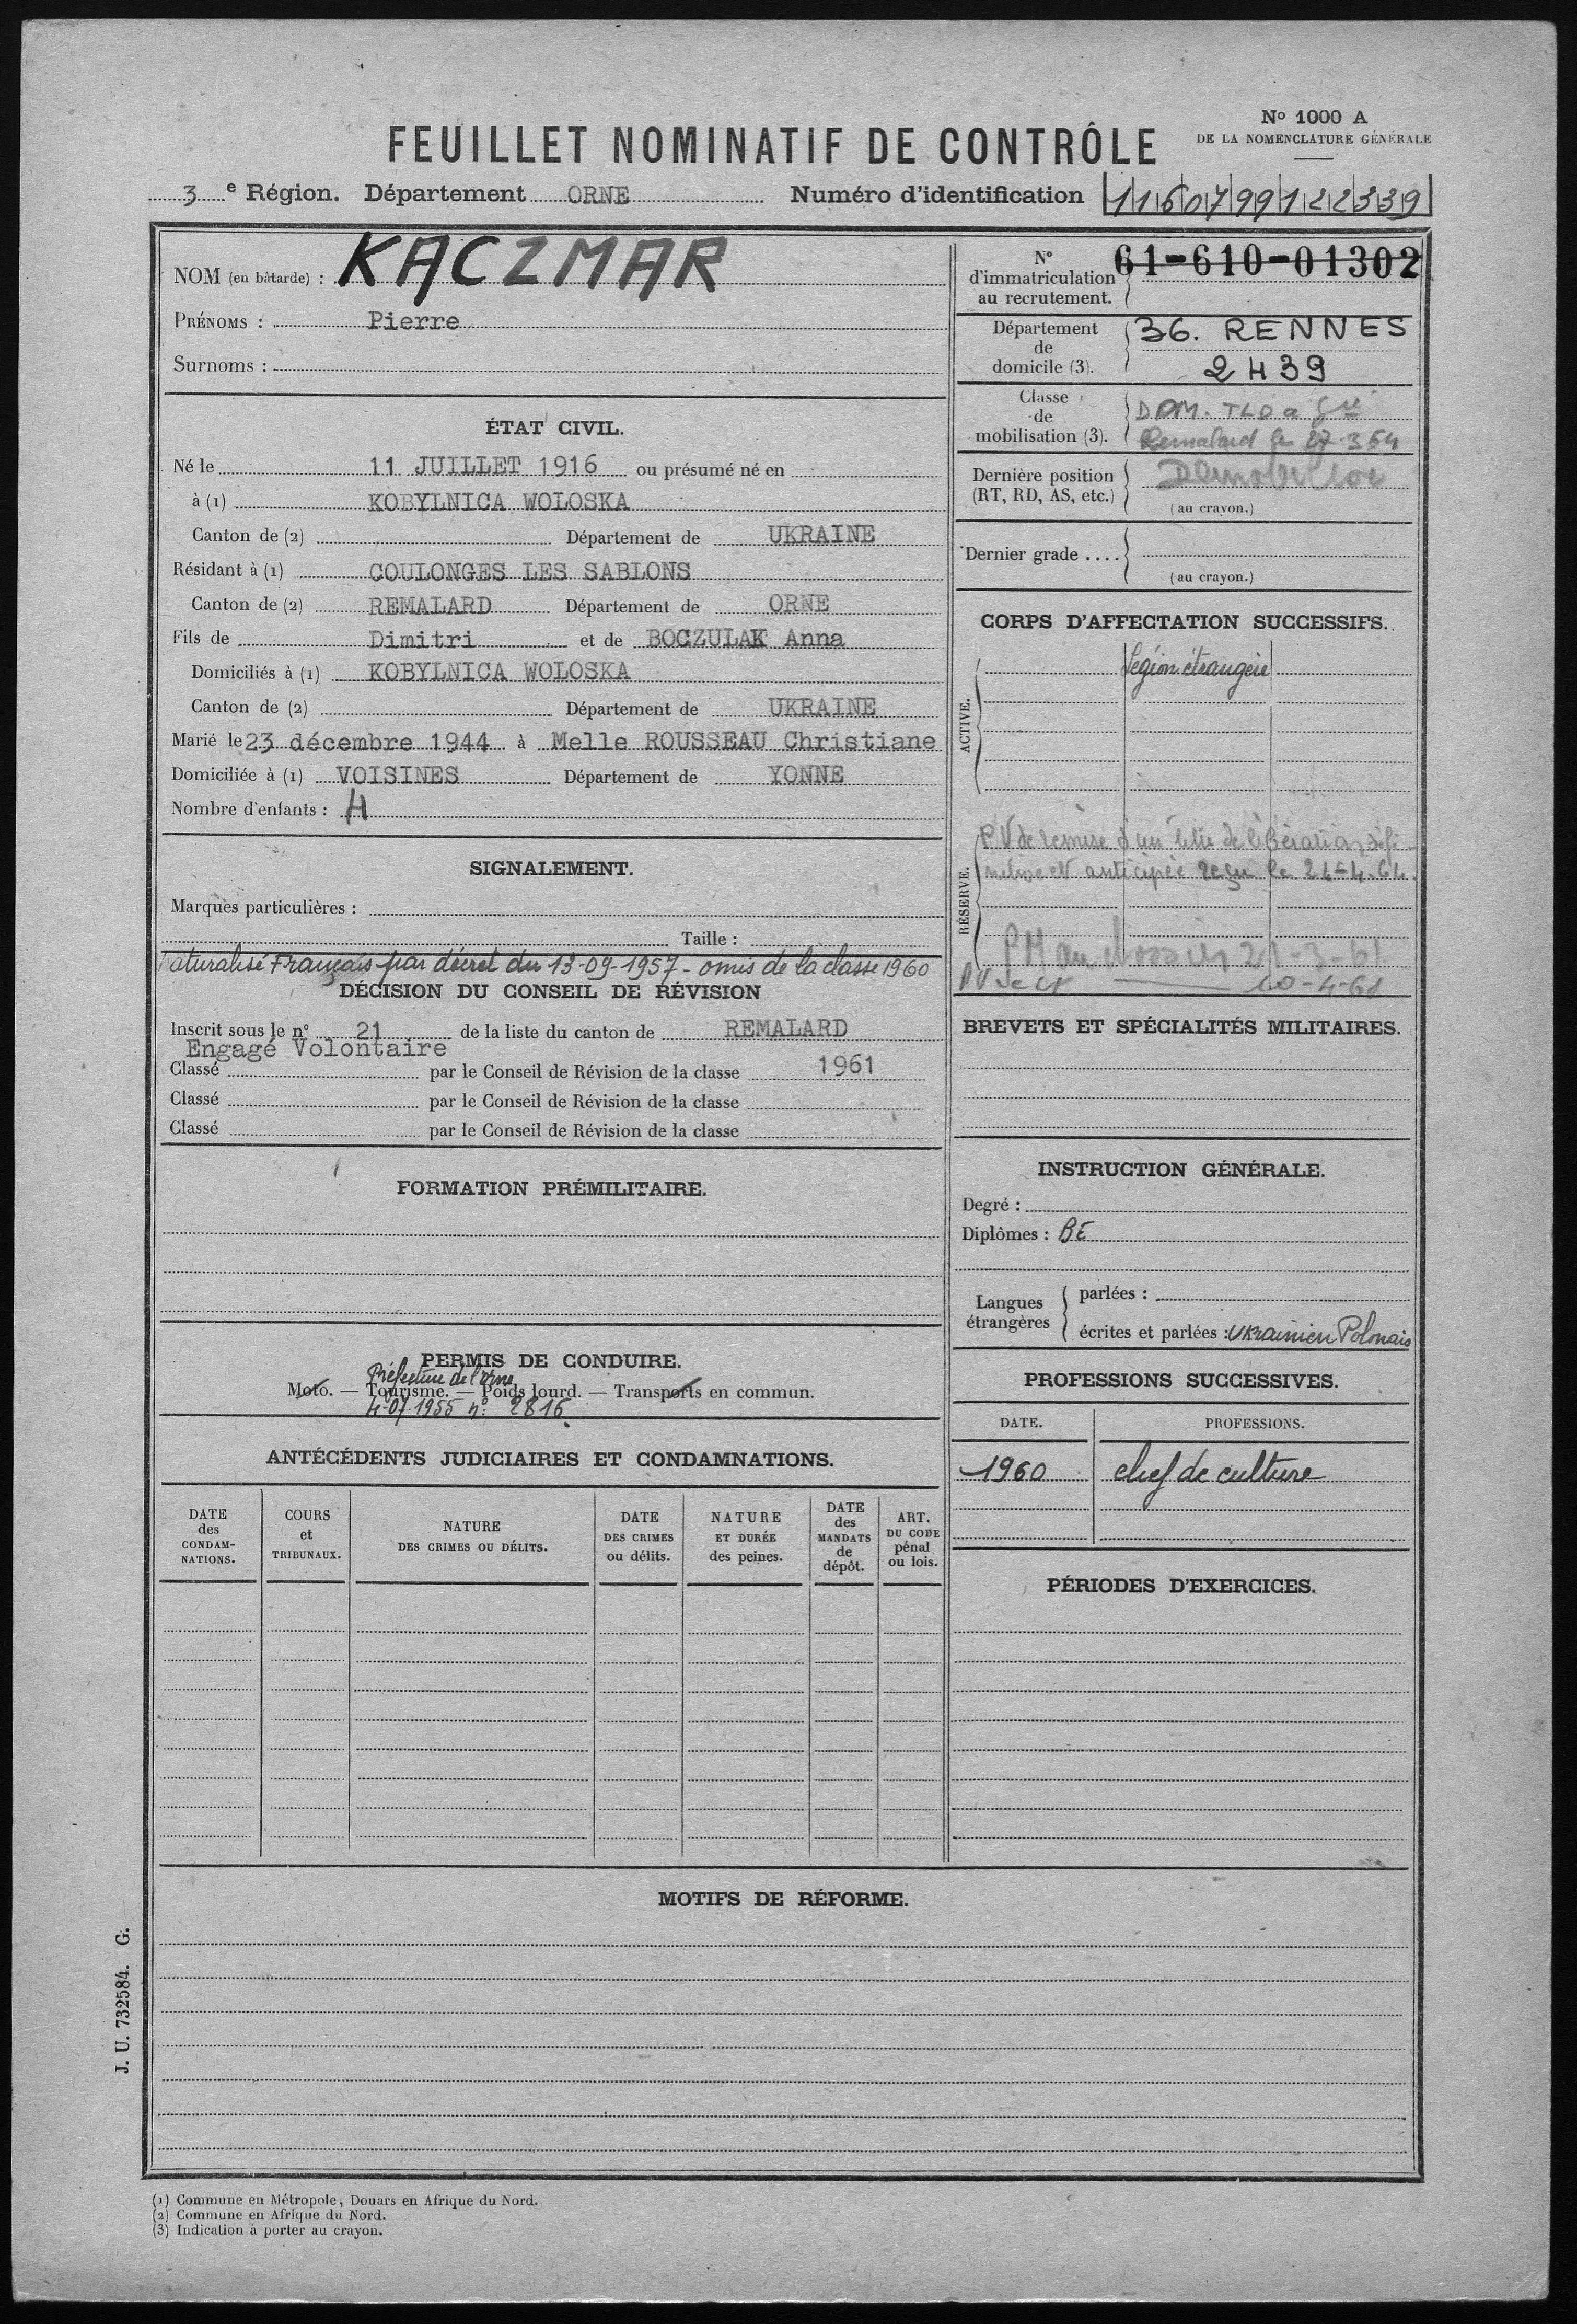 FEUILLET NOMINATIF DE CONTRÔLE
N° 1000 A
DE LA NOMENCLATURE GÉNÉRALE
3 e Région. Département ORNE Numéro d'identification 1160799122339
NOM (en bâtarde) : KACZMAR
PRÉNOMS : Pierre
Surnoms :
ÉTAT CIVIL.
Né le 11 JUILLET 1916 ou présumé né en
à (1) KOBYLNICA WOLOSKA
Canton de (2) Département de UKRAINE
Résidant à (1) COULONGES LES SABLONS
Canton de (2) REMALARD Département de ORNE
Fils de Dimitri et de BOCZULAK Anna
Domiciliés à (1) KOBYLNICA WOLOSKA
Canton de (2) Département de UKRAINE
Marié le 23 décembre 1944 à Melle ROUSSEAU Christiane
Domiciliée à (1) VOISINES Département de YONNE
Nombre d'enfants : 4
SIGNALEMENT.
Marques particulières :
Taille :
naturalisé Français par décret du 13-09-1957 - omis de la classe 1960
DÉCISION DU CONSEIL DE RÉVISION
Inscrit sous le n° 21 de la liste du canton de REMALARD
Engagé Volontaire
Classé par le Conseil de Révision de la classe 1961
Classé par le Conseil de Révision de la classe
Classé par le Conseil de Révision de la classe
FORMATION PRÉMILITAIRE.
PERMIS DE CONDUIRE.
Préfecture de l'Orne
Moto. — Tourisme. — Poids lourd. — Transports en commun.
4-07-1955 n° 2816
ANTÉCÉDENTS JUDICIAIRES ET CONDAMNATIONS.
DATE des CONDAM-NATIONS.
COURS et TRIBUNAUX.
NATURE DES CRIMES OU DÉLITS.
DATE DES CRIMES ou délits.
NATURE ET DURÉE des peines.
DATE des MANDATS de dépôt.
ART. DU CODE pénal ou lois.
N° d'immatriculation au recrutement. 61-610-01302
Département de domicile (3). 36. RENNES
2439
Classe de mobilisation (3). DOM.
Remalard le 27.3.64
Dernière position (RT, RD, AS, etc.)
(au crayon.)
Dernier grade ....
(au crayon.)
CORPS D'AFFECTATION SUCCESSIFS.
ACTIVE.
Légion étrangère
RÉSERVE.
PV de remise d'un titre de libération défi-
nitive et anticipée reçu le 24-4-64.
PM au 21-3-61
PV de 10-4-61
BREVETS ET SPÉCIALITÉS MILITAIRES.
INSTRUCTION GÉNÉRALE.
Degré :
Diplômes : BE
Langues étrangères
parlées :
écrites et parlées : Ukrainien Polonais
PROFESSIONS SUCCESSIVES.
DATE. PROFESSIONS.
1960 chef de culture
PÉRIODES D'EXERCICES.
MOTIFS DE RÉFORME.
J. U. 732584. G.
(1) Commune en Métropole, Douars en Afrique du Nord.
(2) Commune en Afrique du Nord.
(3) Indication à porter au crayon.